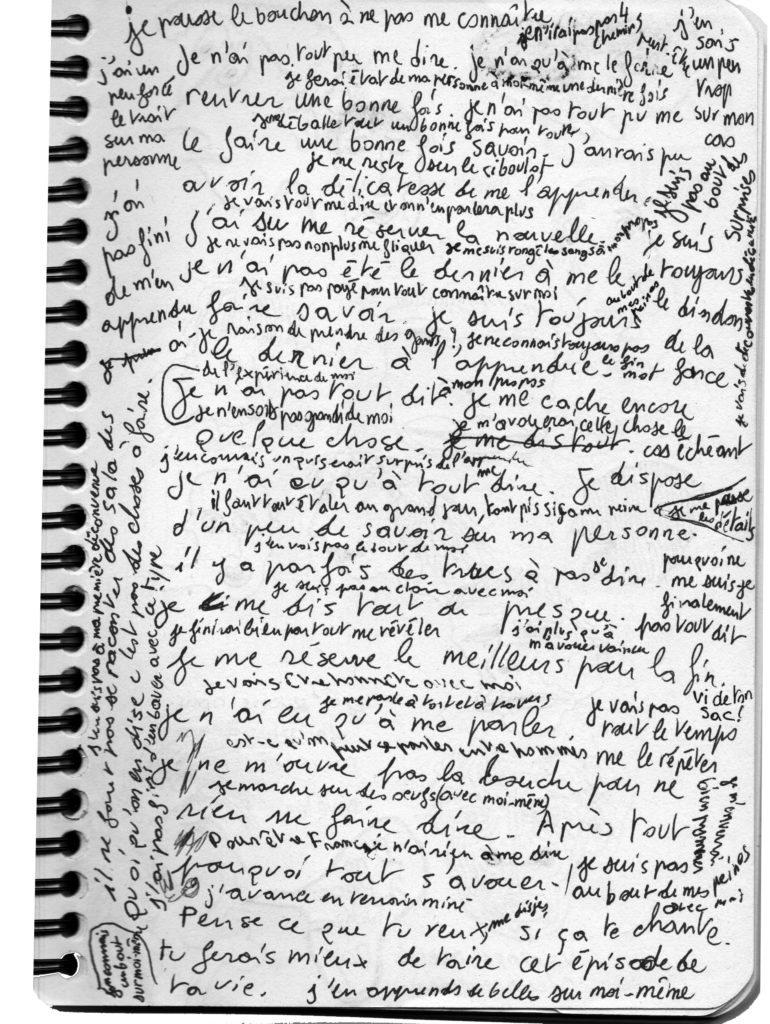 je pousse le bouchon à ne pas me connaître
je n'irai pas par 4 chemins
j'en sais peut-être un peu trop sur mon cas
Je n'ai pas tout pu me dire. je n'ai qu'à me le faire
je ferai état de ma personne à moi-même une dernière fois
rentrer une bonne fois. je n'ai pas tout pu me
je me déballe tout un bonne fois pour toute,
le faire une bonne fois savoir. J'aurais pu
je me reste sur le ciboulot
avoir la délicatesse de me l'apprendre.
je vais tout me dire et on n'en parlera plus
J'ai su me réserver la nouvelle.
je ne vais pas non plus me fliquer je me suis rongé les sangs à mon propos
je n'ai pas été le dernier à me le
je suis pas payé pour tout connaître sur moi
faire savoir. je suis toujours
ai-je raison de prendre des gants?, je ne connais toujours pas le fin mot
le dernier à l'apprendre.
de l'expérience de moi
je n'ai pas tout dit à mon propos
je me cache encore
je n'en sors pas grandi de moi
je m'avouerai cette chose le cas échéant
quelque chose.
j'en connais un qui serait surpris de l'apprendre
je n'ai eu qu'à tout me dire. Je dispose
il faut tout étaler au grand jour, tant pis si ça me ruine
je me passe les détails
d'un peu de savoir sur ma personne.
j'en vois pas le bout de moi
il y a parfois des trucs à pas se dire.
je suis pas au clair avec moi
je me dis tout ou presque.
je finirai bien par tout me révéler
j'ai plus qu'à m'avouer vaincu
pourquoi ne me suis-je finalement pas tout dit
Je me réserve le meilleurs pour la fin.
je vais être honnête avec moi
je me parle à tort et à travers
je n'ai eu qu'à me parler.
je vais pas tout le temps me le répéter
vide ton sac!
est-ce qu'on peut se parler entre hommes
je ne m'ouvre pas la bouche pour ne
je marche sur des oeufs (avec moi-même)
rien me faire dire. Après tout
Pour être Franc je n'ai rien à me dire
pourquoi tout s'avouer.
je suis pas au bout de mes peines avec moi
j'avance en terrain miné
Pense ce que tu veux, me dis-je, si ça te chante.
tu ferais mieux de taire cet épisode de
ta vie. j'en apprends de belles sur moi-même
j'ai un peu forcé le trait sur ma personne
j'ai pas fini de m'en apprendre
je suis pas au bout des surprises
je suis toujours le dindon de la farce
au bout de mes peines
je vais de déconvenue en déconvenue
j'en suis pas à ma première déconvenue
il ne faut pas se raconter des salades
Quoi qu'on en dise c'est pas des choses à faire.
j'ai pas fini d'en baver avec ce type
j'en connais un bout sur moi-même